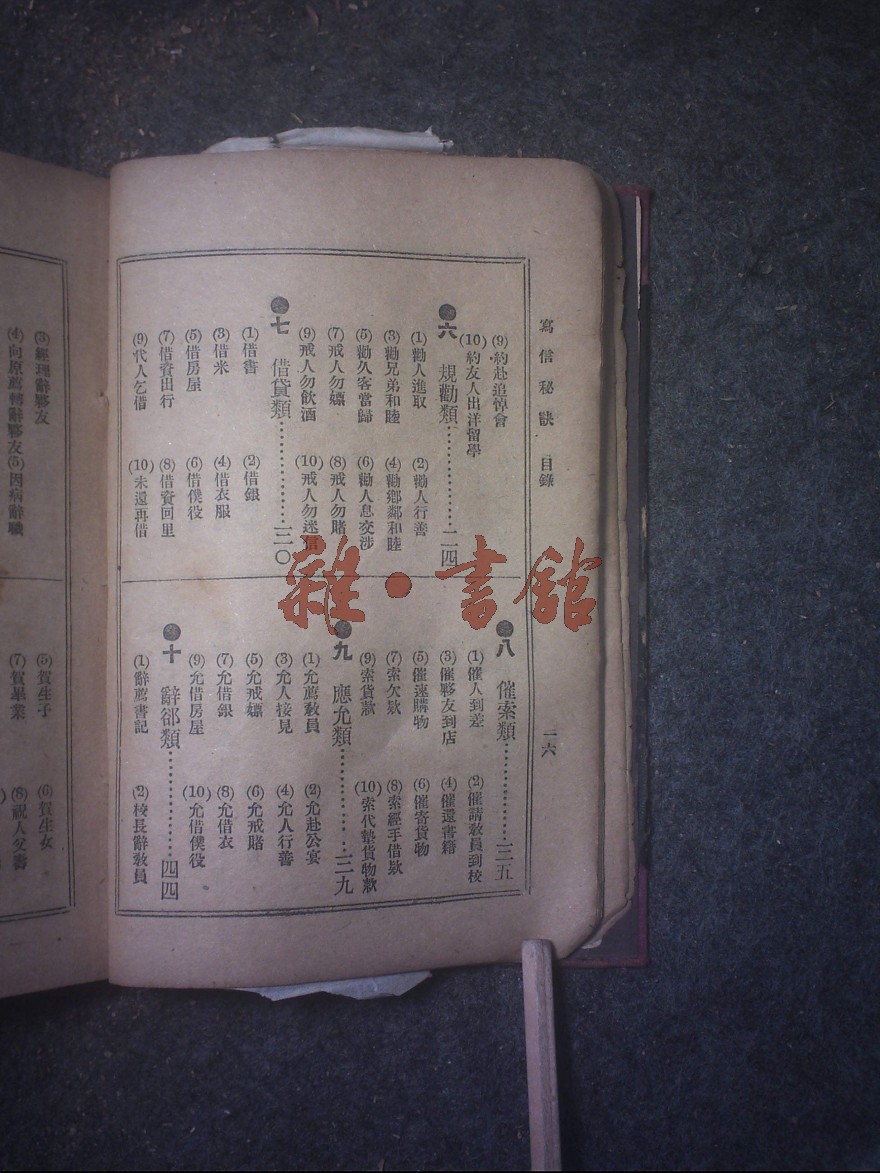 寫信祕訣 目錄
一六
(9)約赴追悼會
(10)約友人出洋留學
六 規勸類……………二四
(1)勸人進取 (2)勸人行善
(3)勸兄弟和睦 (4)勸鄉鄰和睦
(5)勸久客當歸 (6)勸人息交涉
(7)戒人勿嫖 (8)戒人勿賭
(9)戒人勿飲酒 (10)戒人勿迷信
七 借貸類……………三〇
(1)借書 (2)借銀
(3)借米 (4)借衣服
(5)借房屋 (6)借僕役
(7)借資出行 (8)借資回里
(9)代人乞借 (10)未還再借
八 催索類……………三五
(1)催人到差 (2)催請敎員到校
(3)催夥友到店 (4)催還書籍
(5)催速購物 (6)催寄貨物
(7)索欠款 (8)索經手借款
(9)索貨款 (10)索代墊貨物款
九 應允類……………三九
(1)允薦敎員 (2)允赴公宴
(3)允人接見 (4)允人行善
(5)允戒嫖 (6)允戒賭
(7)允借銀 (8)允借衣
(9)允借房屋 (10)允借僕役
十 辭卻類……………四四
(1)辭薦書記 (2)校長辭敎員
(3)經理辭夥友
(4)向原薦轉辭夥友 (5)因病辭職
(5)賀生子 (6)賀生女
(7)賀畢業 (8)祝人父壽
雜·書館